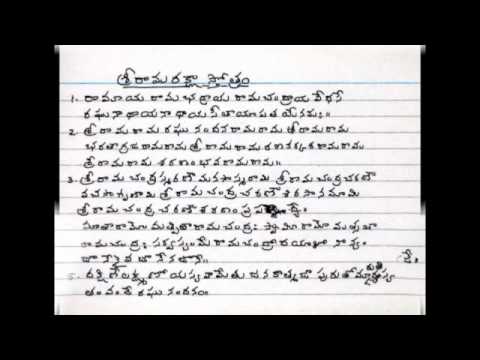 శ్రీరామరక్షా స్తోత్రం
1. రామాయ రామభద్రాయ రామచంద్రాయ వేధసే
రఘునాథాయ నాథాయ సీతాయాపతయేనమః॥
2. శ్రీ రామ రామ రఘునందన రామ రామ శ్రీ రామ రామ
భరతాగ్రజ రామ రామ శ్రీ రామ రామ రణకర్కశ రామ రామ
శ్రీ రామ రామ శరణం భవ రామ రామ॥
3. శ్రీ రామచంద్ర చరణౌ మనసాస్మరామి శ్రీ రామచంద్ర చరణౌ
వచసాగృణామి శ్రీ రామ చంద్ర చరణౌ శిరసానమామి
శ్రీ రామ చంద్ర చరణౌ శరణం ప్రపద్యే.
మాతారామో మత్పితా రామచంద్రః స్వామీ రామో మత్సఖా
రామచంద్రః సర్వస్వం మే రామచంద్రో దయాళు నాన్యం
జానే నైవ జానే నజానే॥
దక్షిణే లక్ష్మణో యస్య వామేతు జనకాత్మజా పురతో
తం వందే రఘునందనం॥